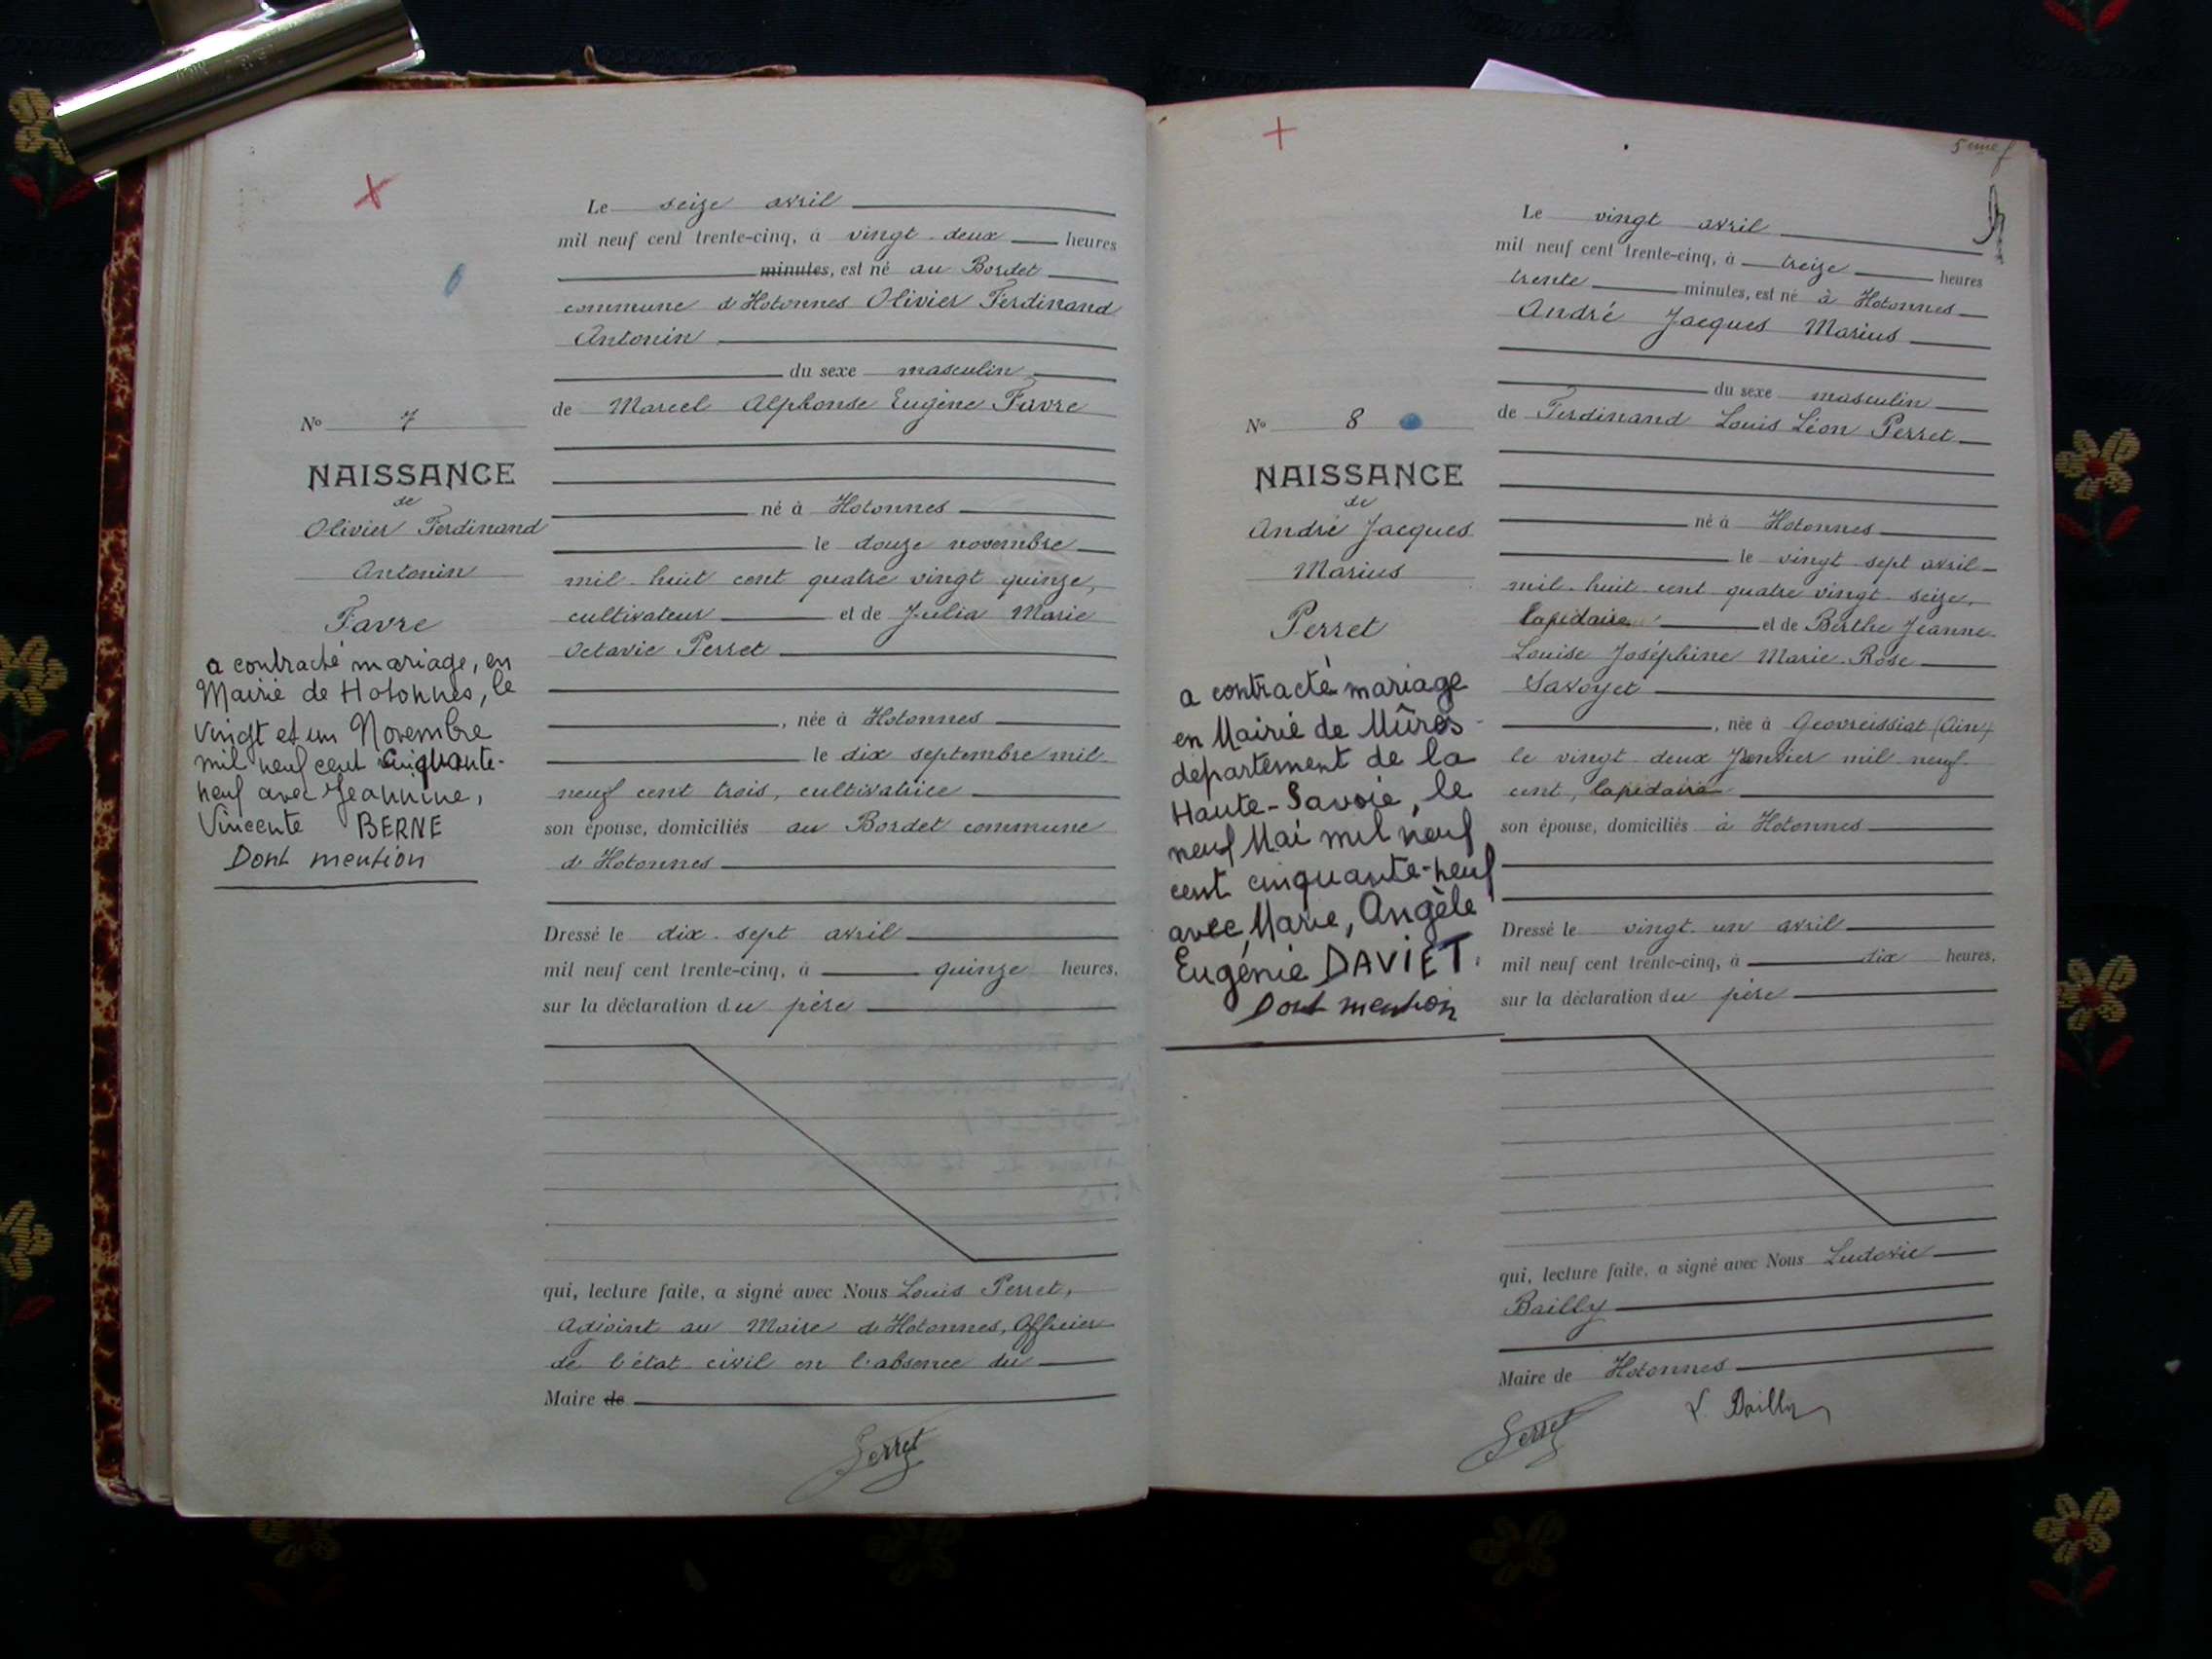 Le seize avril
mil neuf cent trente-cinq, à vingt-deux heures
minutes, est né au Bordet
commune d'Hotonnes Olivier Ferdinand
Antonin
du sexe masculin
de Marcel Alphonse Eugène Favre
né à Hotonnes
le douze novembre
mil-huit cent quatre vingt quinze,
cultivateur et de Julia Marie
Octavie Perret
, née à Hotonnes
le dix septembre mil
neuf cent trois, cultivatrice
son épouse, domiciliés au Bordet commune
d'Hotonnes
Dressé le dix-sept avril
mil neuf cent trente-cinq, à quinze heures,
sur la déclaration du père
qui, lecture faite, a signé avec Nous Louis Perret,
Adjoint au Maire d'Hotonnes, Officier
de l'état-civil en l'absence du
Maire de
Perret
No 7
NAISSANCE
de
Olivier Ferdinand
Antonin
Favre
a contracté mariage, en
Mairie de Hotonnes, le
vingt et un Novembre
mil neuf cent cinquante-
neuf avec Jeannine,
Vincente BERNE
Dont mention
5ème f
Le vingt avril
mil neuf cent trente-cinq, à treize heures
trente minutes, est né à Hotonnes
André Jacques Marius
du sexe masculin
de Ferdinand Louis Léon Perret
né à Hotonnes
le vingt-sept avril
mil-huit-cent quatre vingt-seize,
lapidaire et de Berthe Jeanne
Louise Joséphine Marie-Rose
Savoyet
, née à Geovreissiat (Ain)
le vingt-deux Janvier mil-neuf-
cent, lapidaire
son épouse, domiciliés à Hotonnes
Dressé le vingt-un avril
mil neuf cent trente-cinq, à dix heures,
sur la déclaration du père
qui, lecture faite, a signé avec Nous Ludovic
Bailly
Maire de Hotonnes
Perret
L. Bailly
No 8
NAISSANCE
de
André Jacques
Marius
Perret
a contracté mariage
en Mairie de Mûres
département de la
Haute-Savoie, le
neuf Mai mil neuf
cent cinquante-neuf
avec Marie, Angèle
Eugénie DAVIET.
Dont mention